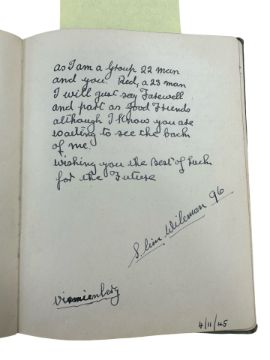 as I am a Group 22 man
and you Red, a 23 man
I will just say Farewell
and part as Good Friends
although I know you are
waiting to see the back
of me
wishing you the Best of Luck
for the Future
Slim Wileman 96
4/11/45